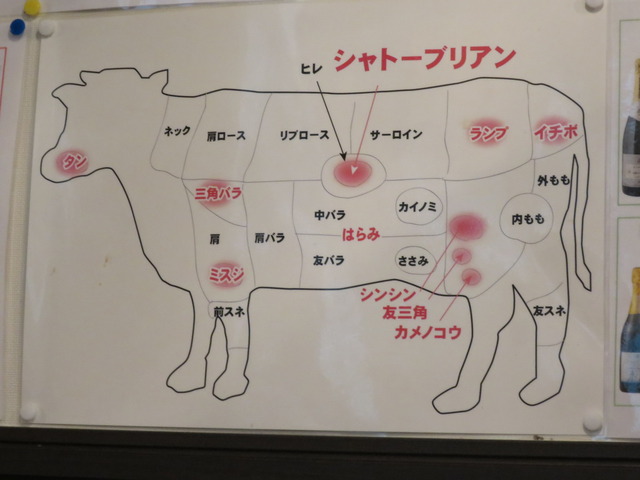 シャトーブリアン
ヒレ
ネック
肩ロース
リブロース
サーロイン
ランプ
イチボ
タン
三角バラ
外もも
カイノミ
中バラ
内もも
はらみ
肩
肩バラ
友バラ
ささみ
ミスジ
シンシン
前スネ
友三角
友スネ
カメノコウ